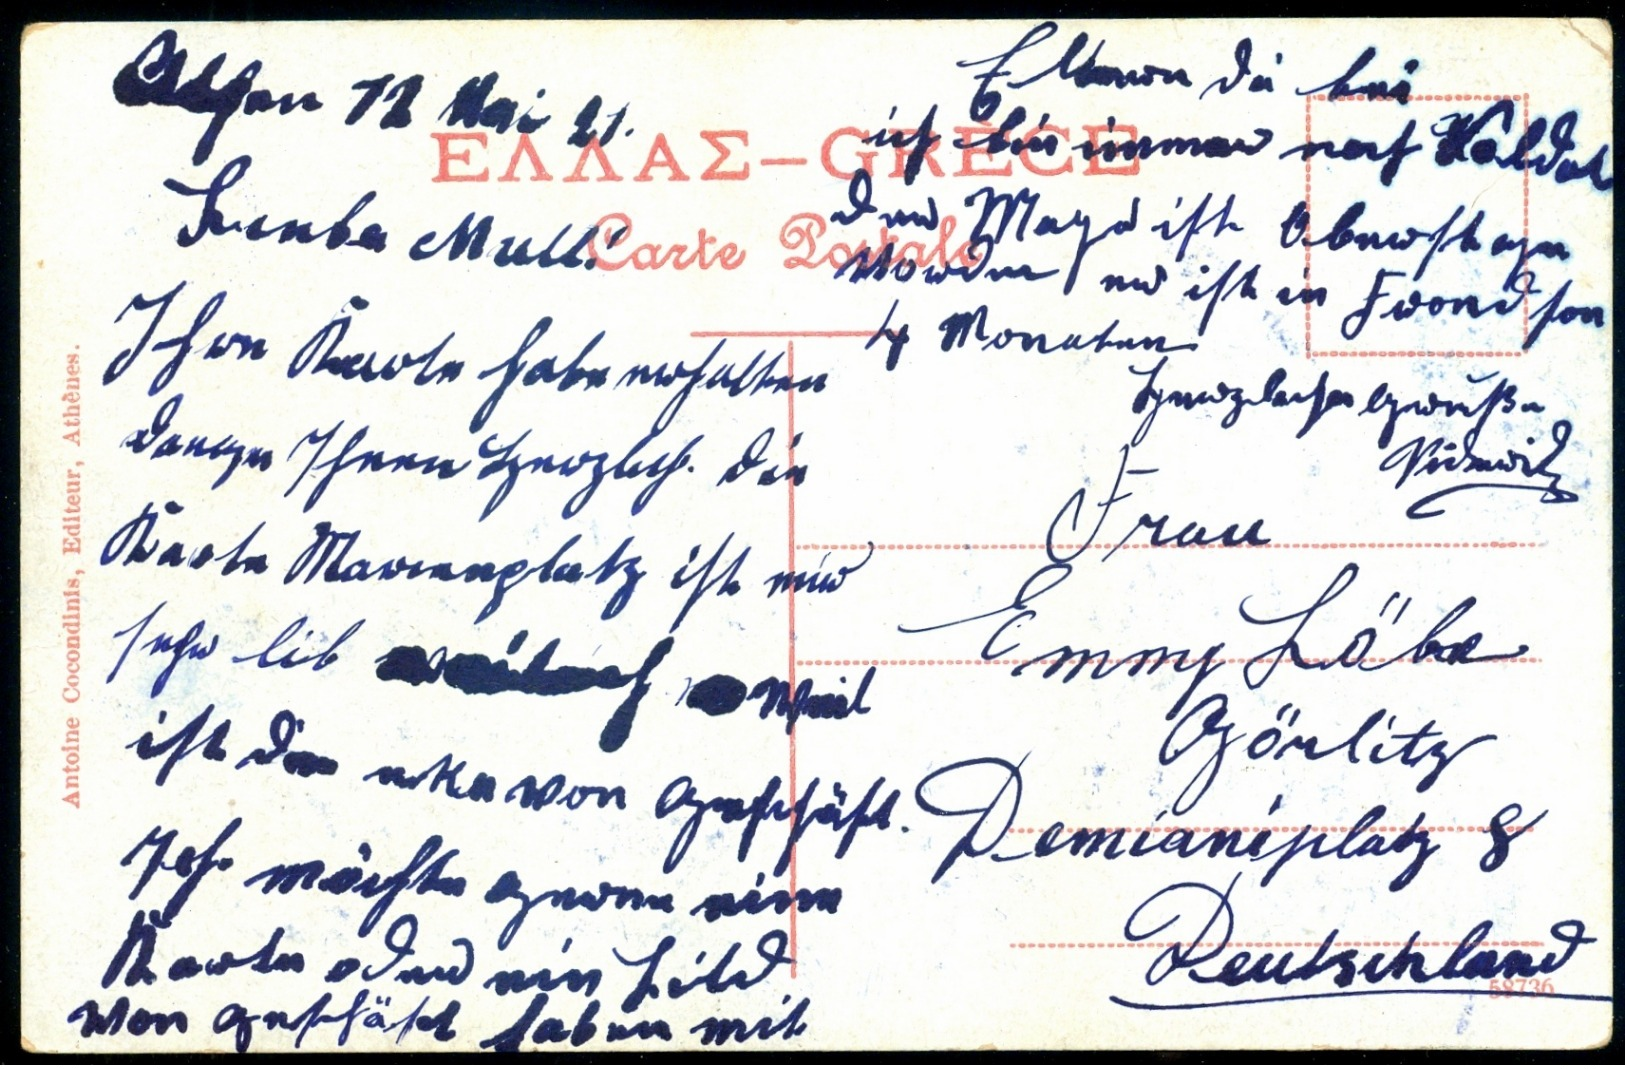 Athen 12 Mai 21.
Liebe Mutti!
Ihre Karte habe erhalten
danke Ihnen herzlich. Die
Karte Marienplatz ist mir
sehr lib weil
ist die von Geschäft.
Ich möchte gerne eine
Karte oder ein Bild
von Geschäft haben mit
die bei
ich bin immer noch Soldat
der ist Oberst
worden er ist in Front schon
4 Monaten
herzliche Grüße
ΕΛΛΑΣ–GRÈCE
Carte Postale
Frau
Emmy Löbe
Görlitz
Demianiplatz 8
Deutschland
58736
Antoine Cocondinis, Editeur, Athènes.